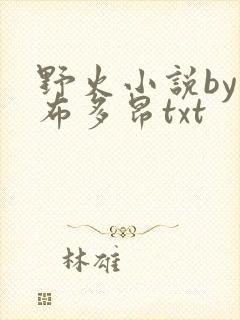 野火小説by
布多昂txt
林雄